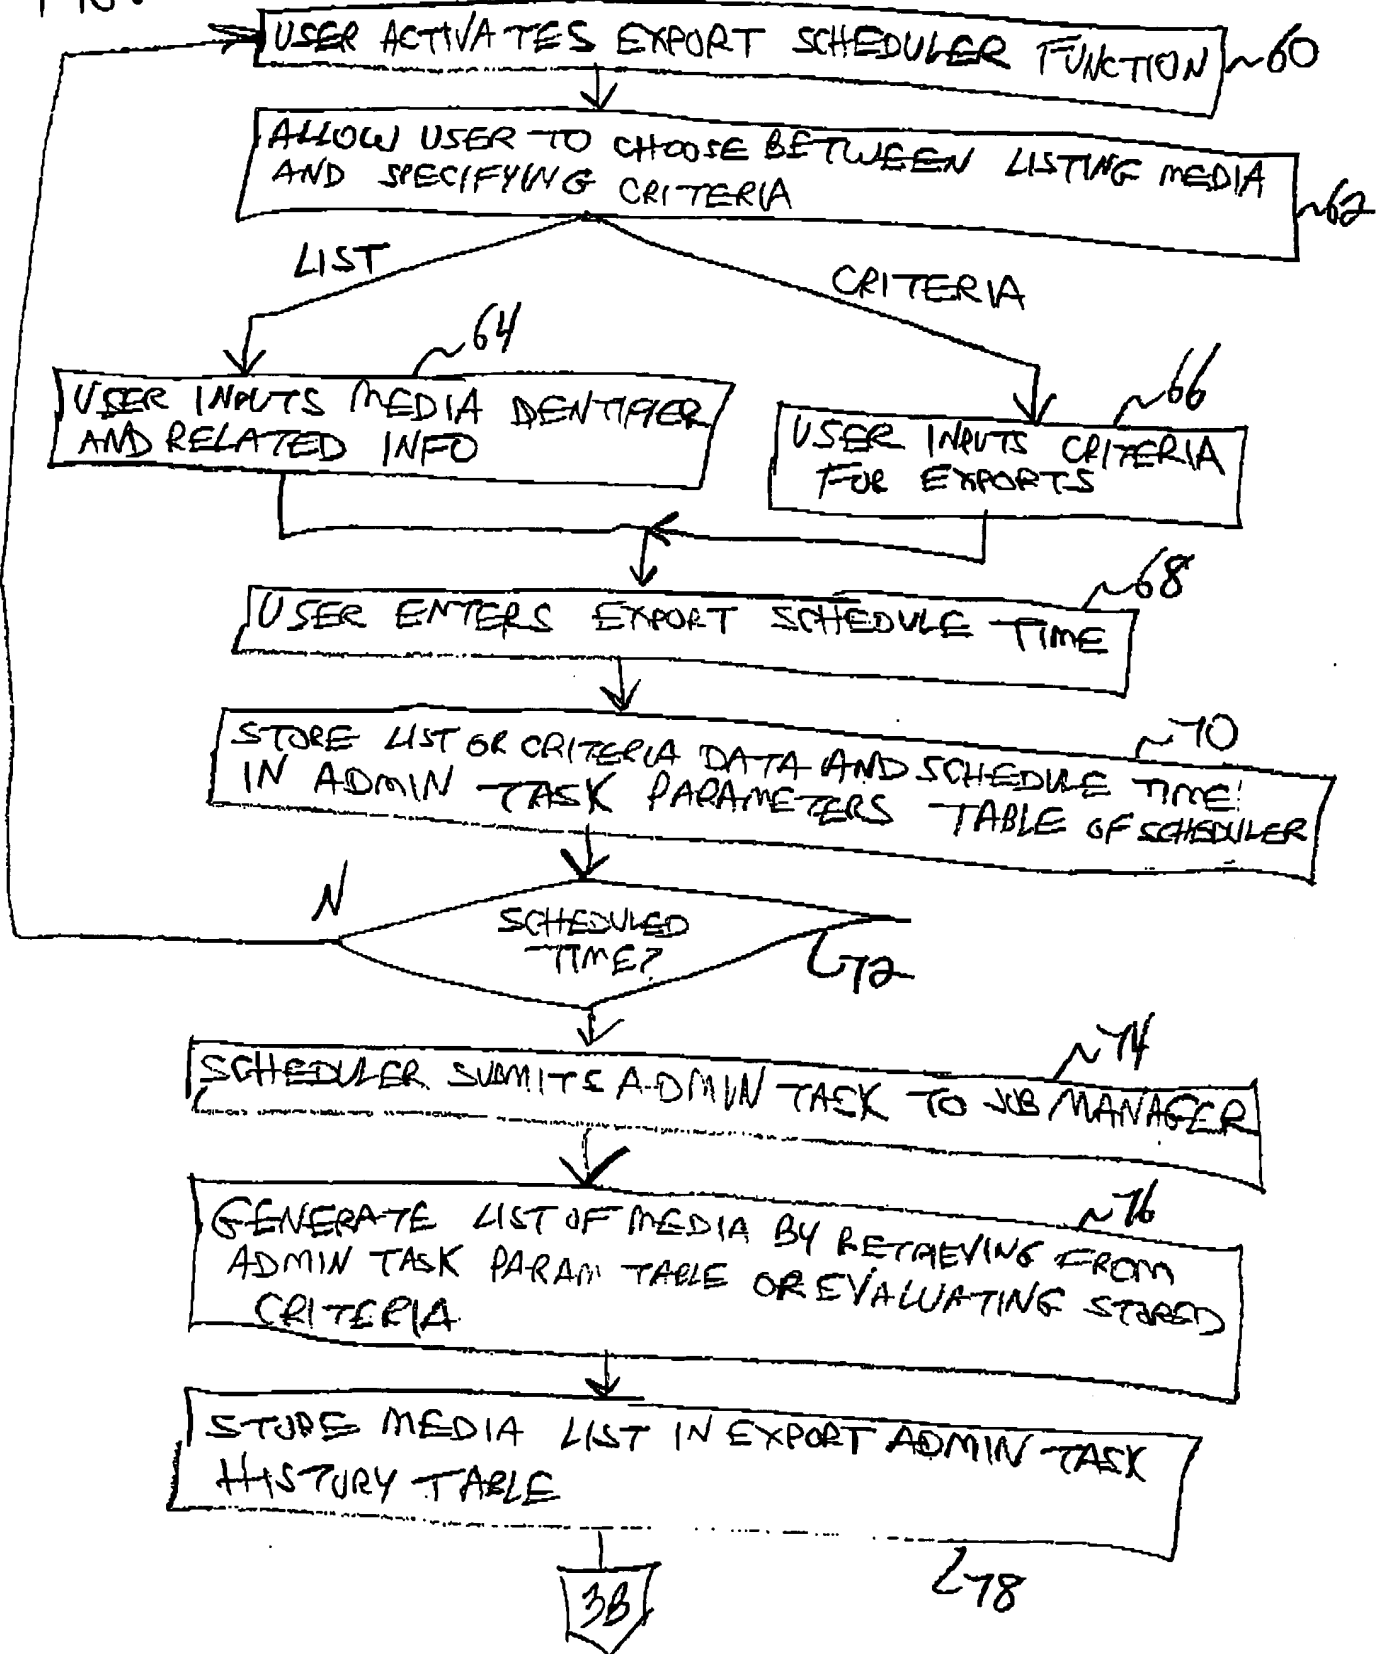 FIG.
USER ACTIVATES EXPORT SCHEDULER FUNCTION
~60
ALLOW USER TO CHOOSE BETWEEN LISTING MEDIA
AND SPECIFYING CRITERIA
~62
LIST
CRITERIA
~64
~66
USER INPUTS MEDIA IDENTIFIER
AND RELATED INFO
USER INPUTS CRITERIA
FOR EXPORTS
~68
USER ENTERS EXPORT SCHEDULE TIME
~70
STORE LIST OR CRITERIA DATA AND SCHEDULE TIME
IN ADMIN TASK PARAMETERS TABLE OF SCHEDULER
N
SCHEDULED
TIME?
72
~74
SCHEDULER SUBMITS ADMIN TASK TO JOB MANAGER
~76
GENERATE LIST OF MEDIA BY RETRIEVING FROM
ADMIN TASK PARAM TABLE OR EVALUATING STORED
CRITERIA
STORE MEDIA LIST IN EXPORT ADMIN TASK
HISTORY TABLE
78
3B